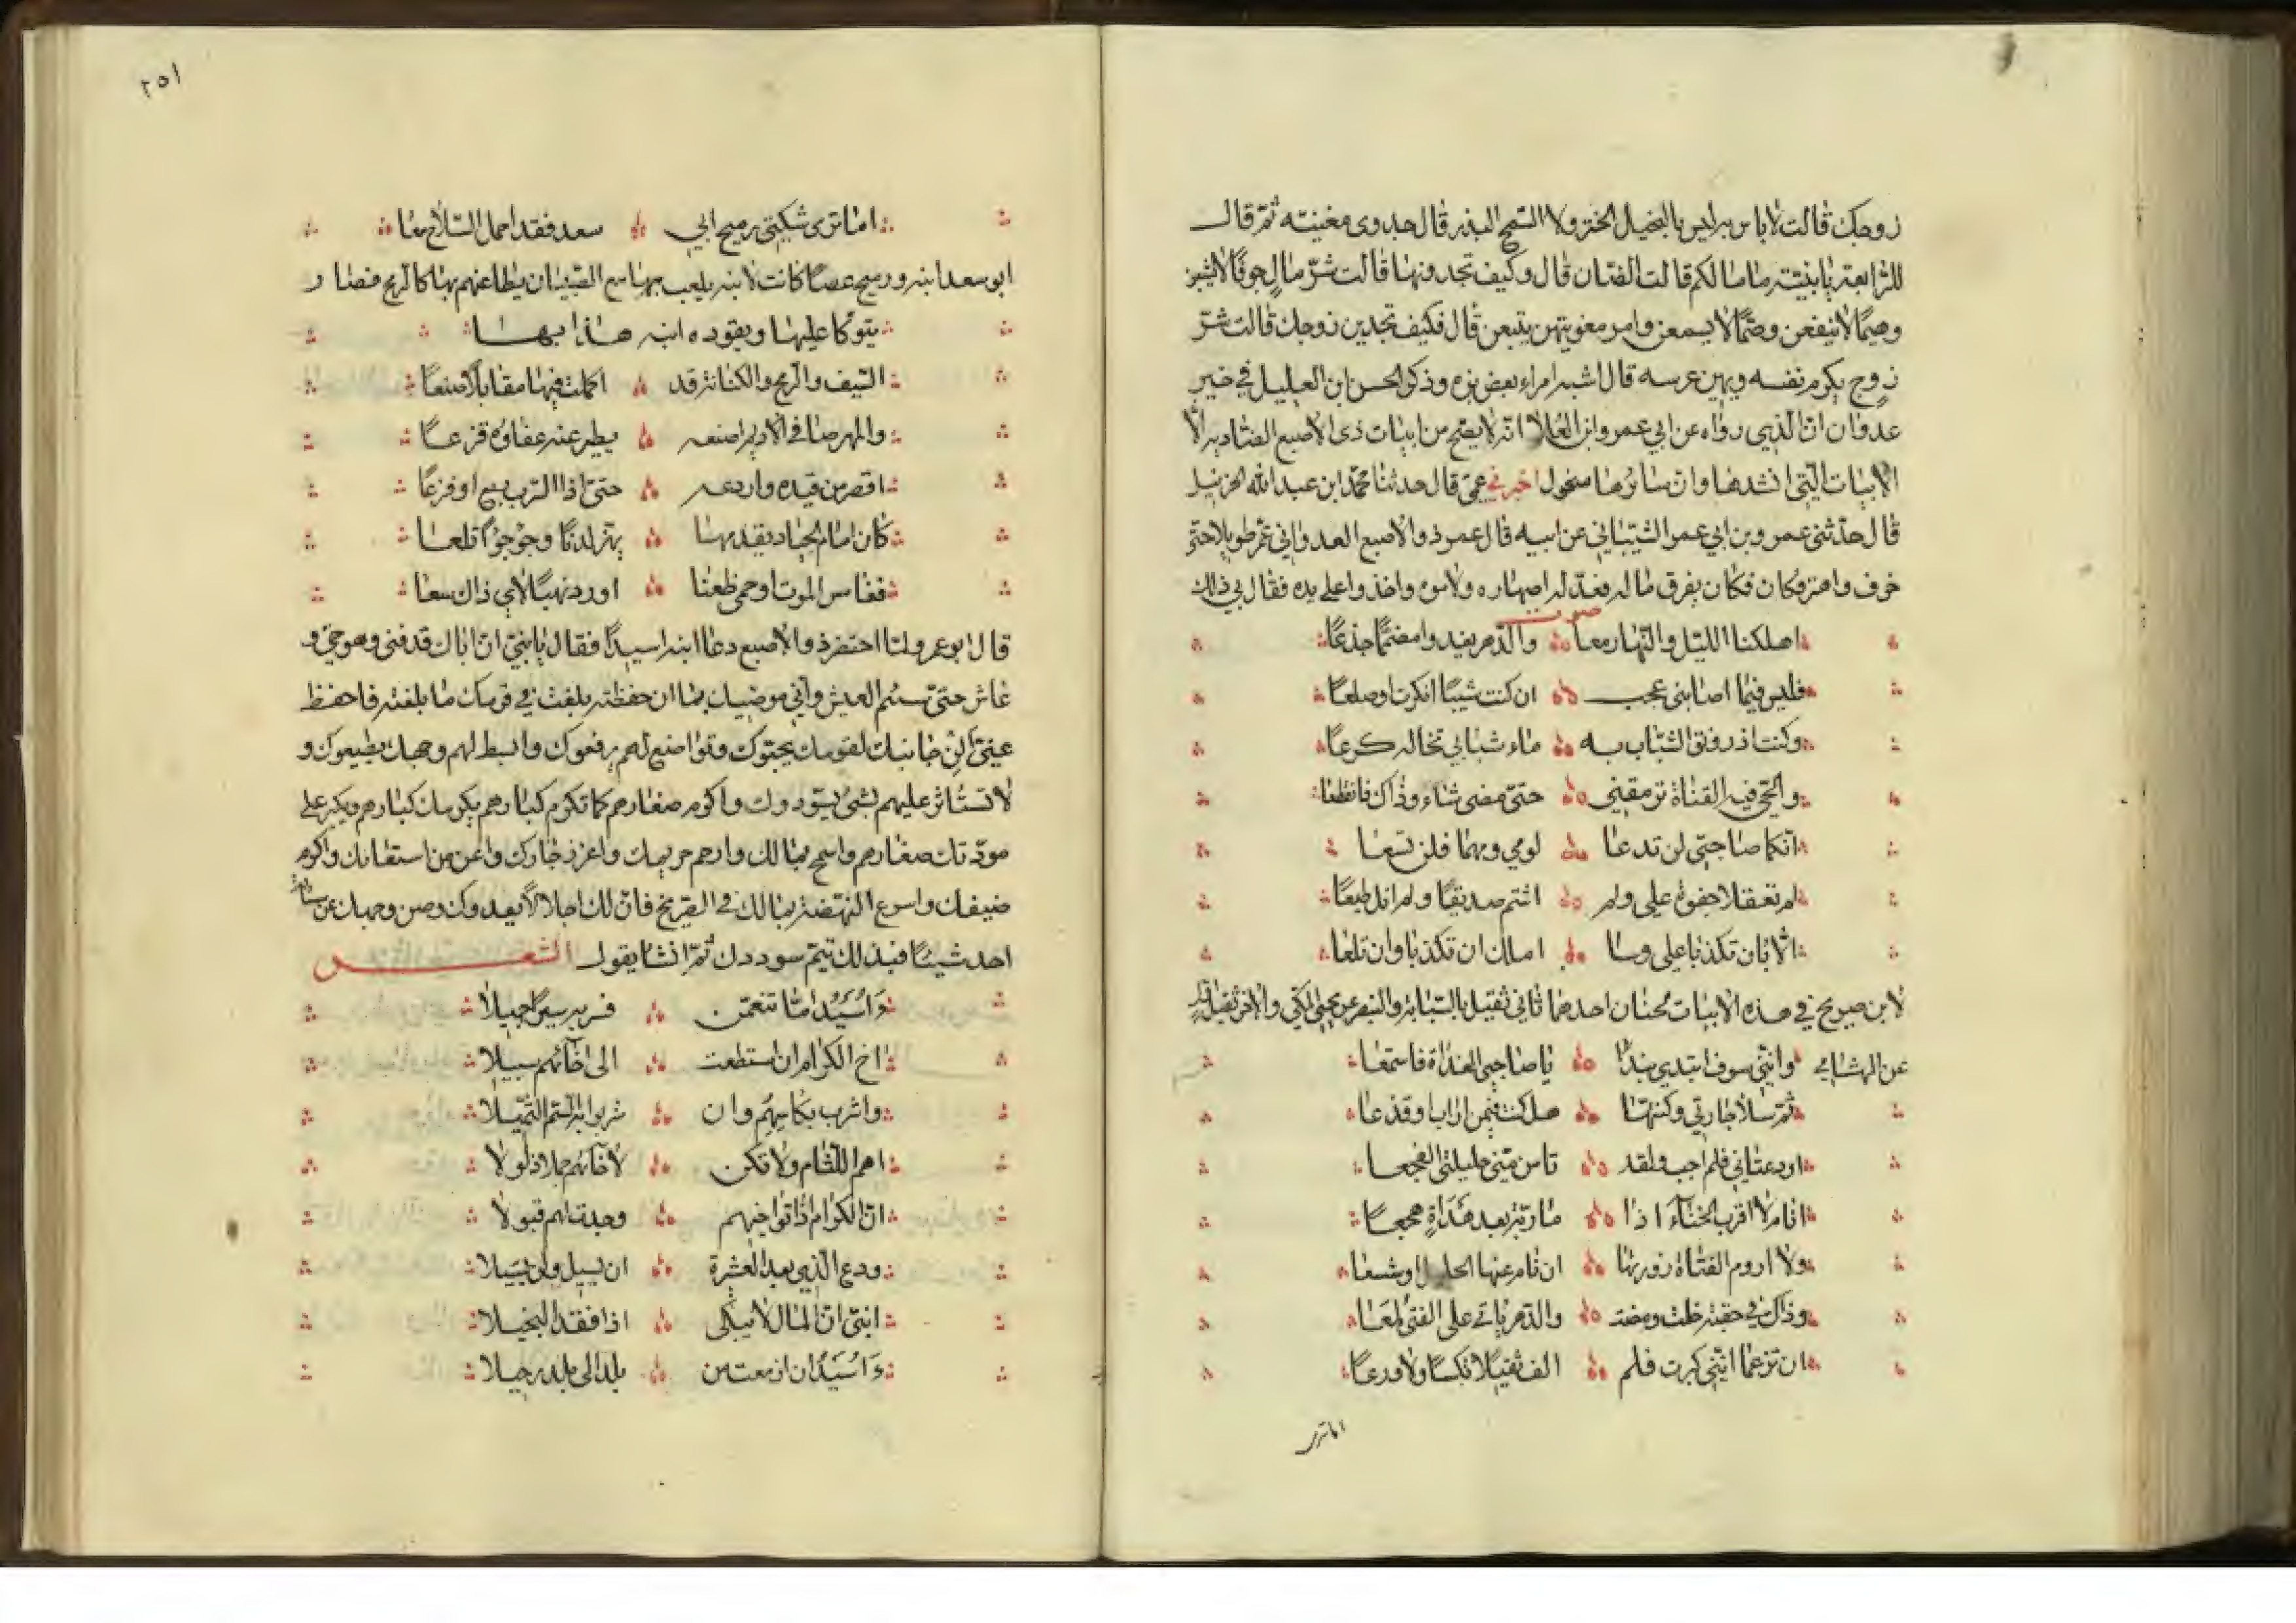 زوجك قالت لا باس به ليس بالبخيل الختر ولا السمح البذر قال جدوى مغنيته ثم قال
للرابعة يا بنيته ما مالكم قالت الضان قال وكيف تجدونها قالت شر مال جوفا لا يشبعن
وهيما لا ينقعن وصما لا يسمعن وامر مغويتهن يتبعن قال فكيف تجدين زوجك قالت شر
زوج يكرم نفسه ويهين عرسه قال اشبه امراء بعض بزه وذكر الحسن ابن العليل في خبر
عدوان ان الذي رواه عن ابي عمرو ابن العلا انه لا يصح من ابيات ذى الاصبع الضاديه الا
الابيات التي انشدها وان سائرها منحول اخبرني عمي قال حدثنا محمد ابن عبد الله الحزنبل
قال حدثني عمرو بن ابي عمر الشيباني عن ابيه قال عمر ذو الاصبع العدواني عمر طويلا حتى
خرف واهتر وكان فكان يفرق ماله فعذله اصهاره ولاموه واخذوا على يده فقال في ذلك
صوت
اهلكنا الليل والنهار معا والدهر يغدوا مصمما جذعا
فليس فيما اصابني عجب ان كنت شيبا انكرت او صلعا
وكنت اذ رونق الشباب به ماء شبابي تخاله كرعا
والحي فيه الفتاة ترمقني حتى مضى شاء وذاك فانقطعا
انكما صاحبي لن تدعا لومي ومهما فلن تسعا
لم تعقلا جفوة على ولم اشتم صديقا ولم انل طبعا
الا بان تكذبا على وما املك ان تكذبا وان تلعا
لابن صريح في هذه الابيات لحنان احدهما ثاني ثقيل بالسبابة والبنصر عن يحيى المكي والاخر ثقيل اول
عن الهشامي وانني سوف ابتدي بندا يا صاحبي الغداة فاستمعا
ثم سلا جارتي وكنتها هل كنت فيمن اراب او قذعا
او دعتاني فلم اجب ولقد تامن مني حليلتي الفجعا
اقام لا اقرب الخباء اذا ما ربه بعد هداة هجعا
ولا اروم الفتاة زورتها ان نام عنها الحليل او شسعا
وذاك في حقبة خلت ومضت والدهر ياتي على الفتى لمعا
ان تزعما انني كبرت فلم الف ثقيلا نكسا ولا ورعا
اما ترى
٢٥١
اما ترى شكيتي رميح ابي سعد فقد احمل السلاح معا
ابو سعد ابنه ورميح عصا كانت لابنه يلعب بها مع الصبيان يطاعنهم بها كالرمح فصار
يتوكا عليها ويقوده ابنه هذا بها
السيف والرمح والكنانة قد اكملت فيها معابلا صنعا
والمهر صافي الاديم اصنعه يطير عنه عفاؤه قزعا
اقصر من قيده واردعه حتى اذا السرب ريع او فزعا
كان امام الجياد يقدمها يهز لدنا وجؤجؤا تلعا
فغامس الموت او حمى ظعنا او رد نهبا لاي ذاك سعا
قال ابو عمر ولما احتضر ذو الاصبع دعا ابنه اسيدا فقال يا بني ان اباك قد فني وهو حي و
عاش حتى سئم العيش واني موصيك بما ان حفظته بلغت في قومك ما بلغته فاحفظ
عني الن جانبك لقومك يحبوك وتواضع لهم يرفعوك وابسط لهم وجهك يطيعوك و
لا تستاثر عليهم بشئ يسودوك واكرم صغارهم كما تكرم كبارهم يكرمك كبارهم ويكبر على
مودتك صغارهم واسمح بمالك وارحم حريمك واعزز جارك واعن من استعانك واكرم
ضيفك واسرع النهضة بمالك في الصريخ فان لك اجلا لا يعدوك وصن وجهك عن مسالة
احد شيئا فبذلك يتم سوددك ثم انشا يقول الشعر
ءاسيد اما تنعمن فسر به سيرا جميلا
اخ الكرام ان استطعت الى اخائهم سبيلا
واشرب بكاسهم وان شربوا به السم الثميلا
اهم اللئام ولا تكن لاخائهم جملا ذلولا
ان الكرام اذا تواخيهم وجدت لهم قبولا
ودع الذي يعد العشيرة ان يسيل ولن يسيلا
ابني ان المال لا يبكى اذا فقد البخيلا
ءاسيد ان ازمعت من بلد الى بلد رحيلا